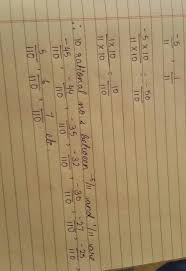 -5/11 , 1/11
-5 × 10 / 11 × 10 = -50/110
1 × 10 / 11 × 10 = 10/110
∴ 10 rational no.s between -5/11 and 1/11 are
-45/110, -44/110, -35/110, -32/110, -30/110, -27/110, -25/110,
5/110, 6/110, 7/110 etc.